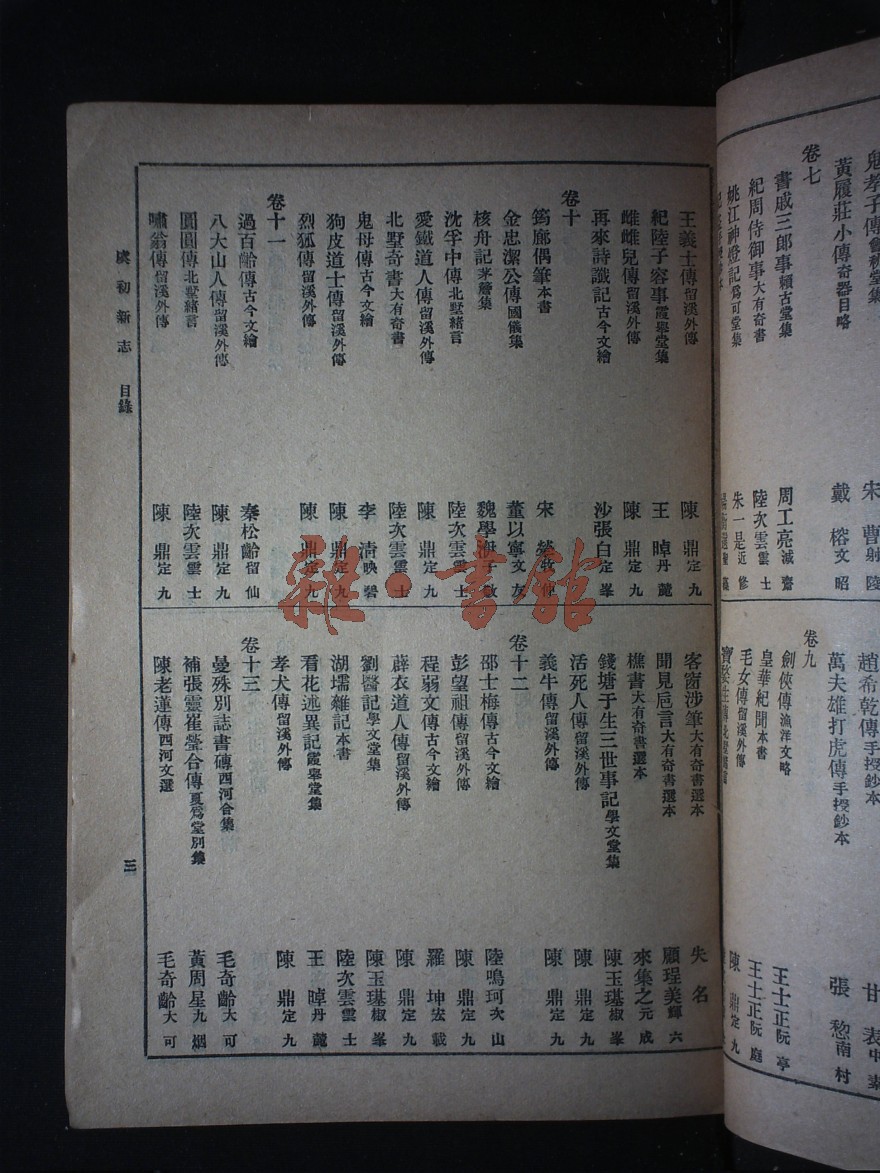 鬼孝子傳 宋曹射陵
黃履莊小傳奇器目略 戴榕文昭
卷七
書戚三郎事賴古堂集 周工亮減齋
紀周侍御事大有奇書 陸次雲雲士
姚江神燈記爲可堂集 朱一是近修
趙希乾傳手授鈔本 甘表中素
萬夫雄打虎傳手授鈔本 張惣南村
卷九
劍俠傳漁洋文略 王士正阮亭
皇華紀聞本書 王士正阮庭
毛女傳留溪外傳 陳鼎定九
王義士傳留溪外傳 陳鼎定九
紀陸子容事霞舉堂集 王晫丹麓
雌雌兒傳留溪外傳 陳鼎定九
再來詩讖記古今文繪 沙張白定峯
卷十
筠廊偶筆本書 宋犖牧仲
金忠潔公傳國儀集 董以寧文友
核舟記茅簷集 魏學洢子敬
沈孚中傳北墅緒言 陸次雲雲士
愛鐵道人傳留溪外傳 陳鼎定九
北墅奇書大有奇書 陸次雲雲士
鬼母傳古今文繪 李清映碧
狗皮道士傳留溪外傳 陳鼎定九
烈狐傳留溪外傳 陳鼎定九
卷十一
過百齡傳古今文繪 秦松齡留仙
八大山人傳留溪外傳 陳鼎定九
圓圓傳北墅緒言 陸次雲雲士
嘯翁傳留溪外傳 陳鼎定九
客窗涉筆大有奇書選本 失名
聞見巵言大有奇書選本 顧珵美輝六
樵書大有奇書選本 來集之元成
錢塘于生三世事記學文堂集 陳玉璂椒峯
活死人傳留溪外傳 陳鼎定九
義牛傳留溪外傳 陳鼎定九
卷十二
邵士梅傳古今文繪 陸鳴珂次山
彭望祖傳留溪外傳 陳鼎定九
程弱文傳古今文繪 羅坤宏載
薜衣道人傳留溪外傳 陳鼎定九
劉醫記學文堂集 陳玉璂椒峯
湖壖雜記本書 陸次雲雲士
看花述異記霞舉堂集 王晫丹麓
孝犬傳留溪外傳 陳鼎定九
卷十三
曼殊別誌書磚西河合集 毛奇齡大可
補張靈崔瑩合傳夏爲堂別集 黃周星九烟
陳老蓮傳西河文選 毛奇齡大可
虞初新志 目錄
三
雜·書館